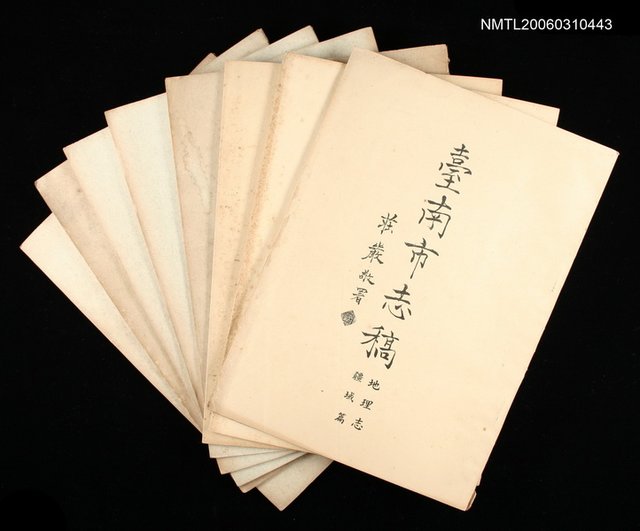 NMTL20060310443
臺南市志稿
地理志
疆域篇
莊嚴敬署